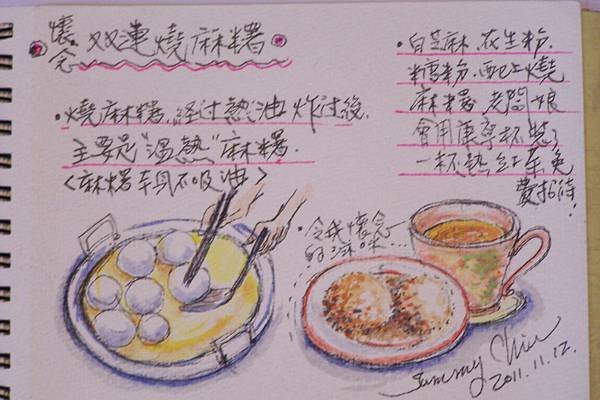 懷念 双連燒麻糬
•燒麻糬.經过熱油炸过後.
主要是"溫熱"麻糬.
<麻糬本身不吸油>
•白芝麻.花生粉.
糖粉.配上燒
麻糬.老闆娘
會用康寧杯裝了
一杯熱紅茶免
費招待!
•令我懷念
的滋味...
Summy Chiu
2011.11.12.